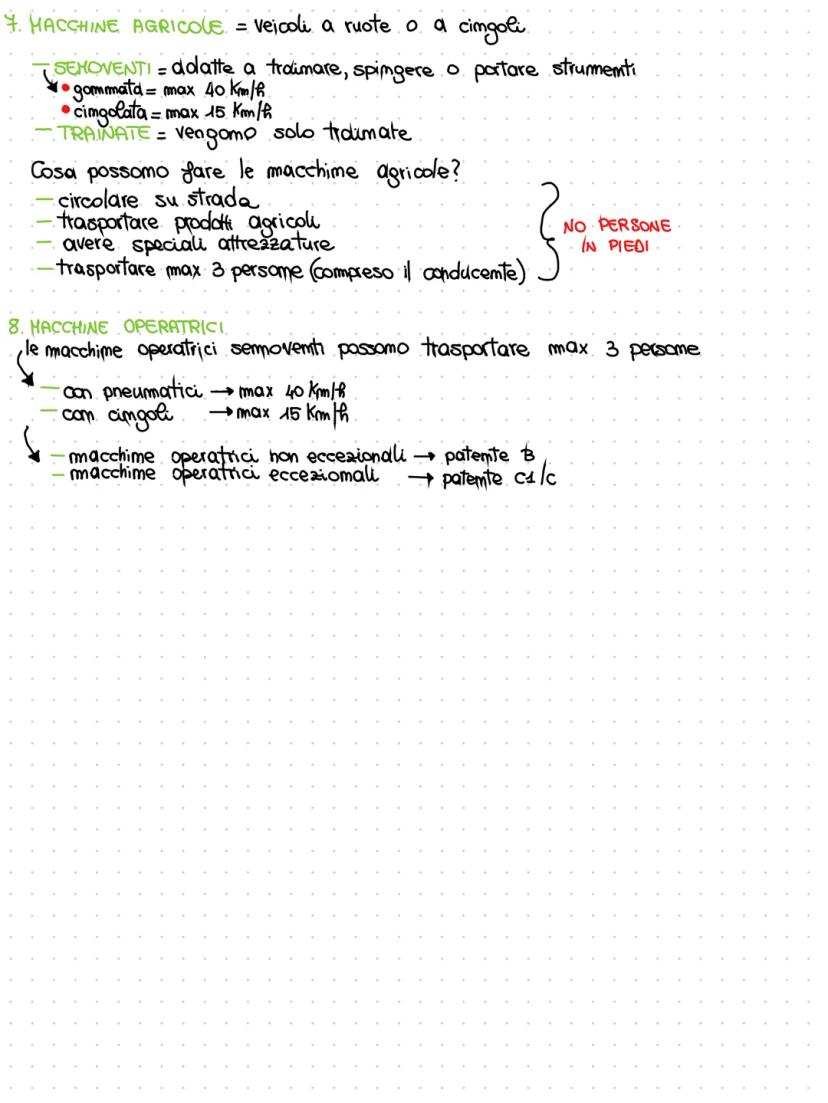 7. MACCHINE AGRICOLE = veicoli a ruote o a cingoli
- SEMOVENTI = adatte a trainare, spingere o portare strumenti
• gommata = max 40 Km/h
• cingolata = max 15 Km/h
- TRAINATE = vengono solo trainate
Cosa possono fare le macchine agricole?
- circolare su strada
- trasportare prodotti agricoli
- avere speciali attrezzature
- trasportare max 3 persone (compreso il conducente)
NO PERSONE
IN PIEDI
8. MACCHINE OPERATRICI
le macchine operatrici semoventi possono trasportare max 3 persone
- con pneumatici → max 40 Km/h
- con cingoli → max 15 Km/h
- macchine operatrici non eccezionali → patente B
- macchine operatrici eccezionali → patente C1/C